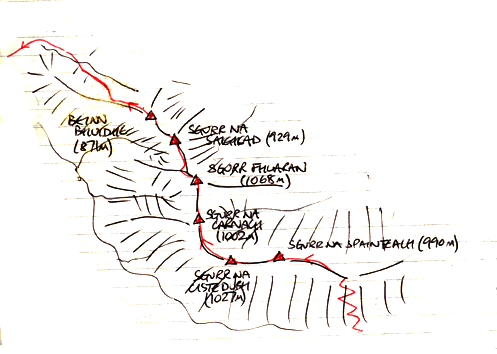 BEINN
BHUIDHE
(876M)
SGURR NA
SAIGHEAD (929M)
SGURR FHUARAN
(1068M)
SGURR NA
CARNACH
(1002M)
SGURR NA SPAINTEACH (990M)
SGURR NA
CISTE DUBH
(1027M)